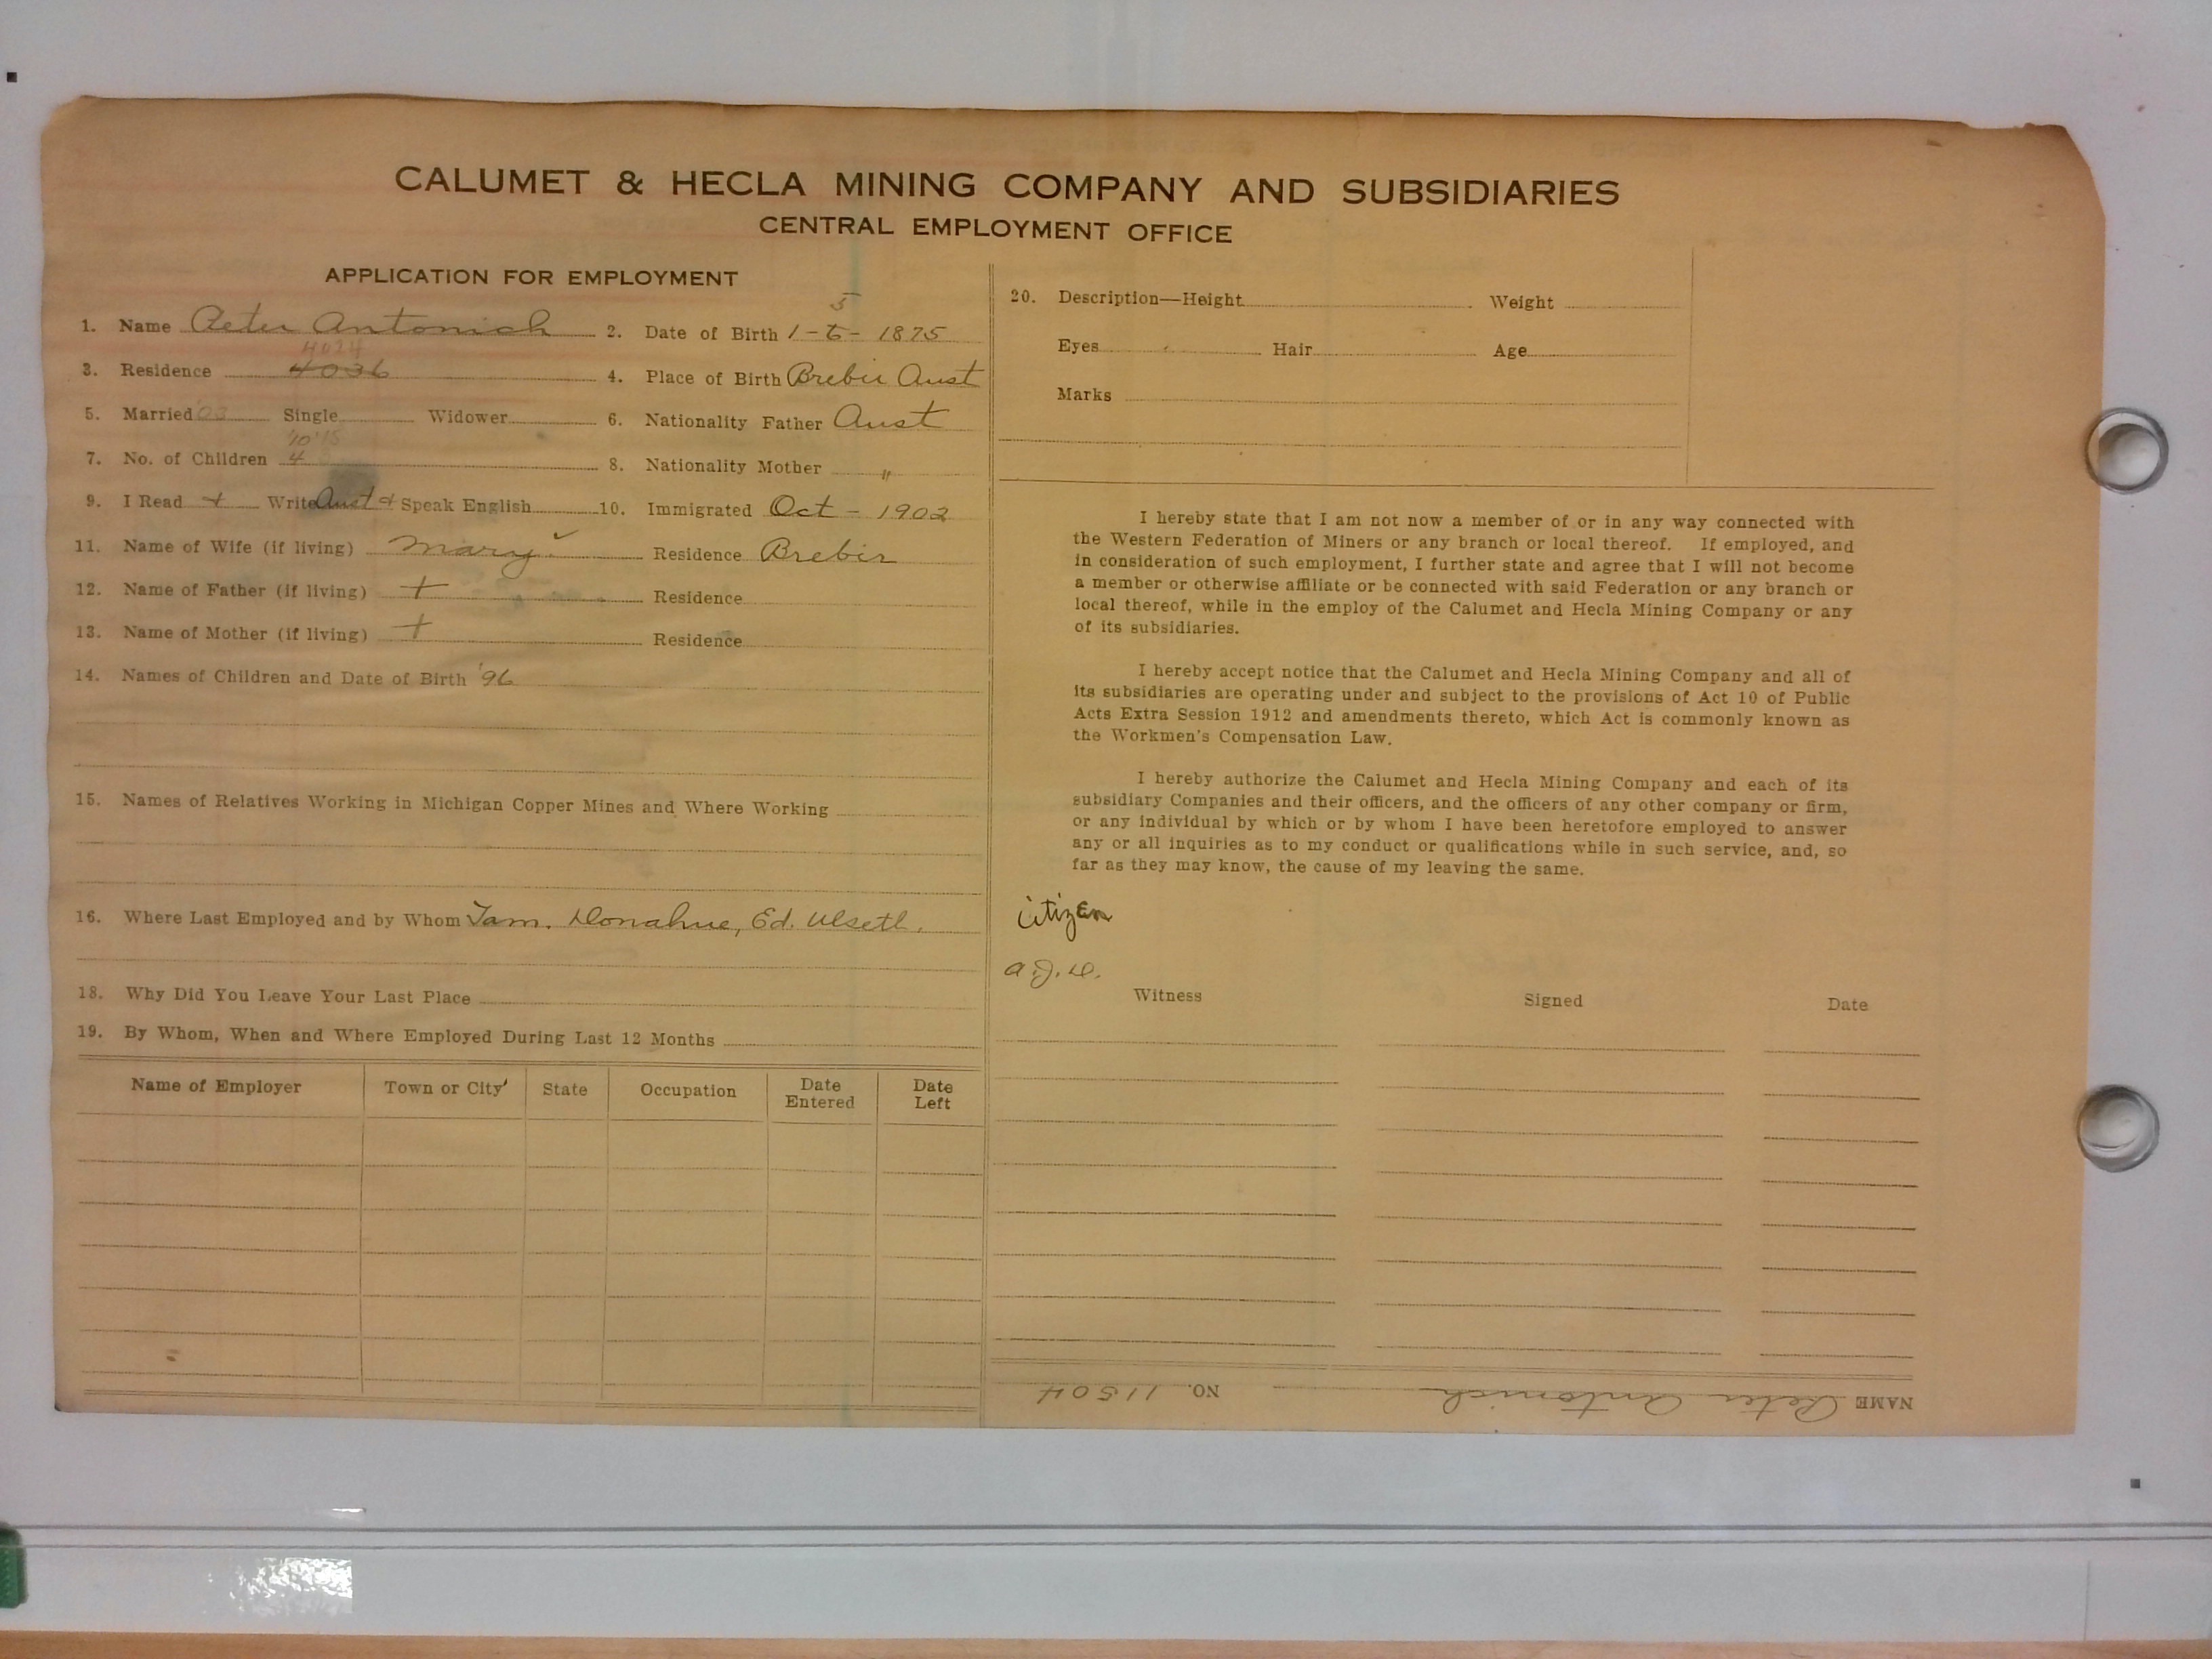 CALUMET & HECLA MINING COMPANY AND SUBSIDIARIES
CENTRAL EMPLOYMENT OFFICE
APPLICATION FOR EMPLOYMENT
5
1. Name Peter Antonich 2. Date of Birth 1-6-1875
4024
3. Residence 4036 4. Place of Birth Brebir Aust
5. Married 03 Single Widower 6. Nationality Father Aust
'10 '15
7. No. of Children 4 8. Nationality Mother "
9. I Read + Write Aust & Speak English 10. Immigrated Oct - 1902
11. Name of Wife (if living) Mary Residence Brebir
12. Name of Father (if living) + Residence
13. Name of Mother (if living) + Residence
14. Names of Children and Date of Birth '96
15. Names of Relatives Working in Michigan Copper Mines and Where Working
16. Where Last Employed and by Whom Tam. Donahue, Ed. Ulseth.
18. Why Did You Leave Your Last Place
19. By Whom, When and Where Employed During Last 12 Months
Name of Employer Town or City State Occupation Date Entered Date Left
20. Description—Height Weight
Eyes Hair Age
Marks
I hereby state that I am not now a member of or in any way connected with
the Western Federation of Miners or any branch or local thereof. If employed, and
in consideration of such employment, I further state and agree that I will not become
a member or otherwise affiliate or be connected with said Federation or any branch or
local thereof, while in the employ of the Calumet and Hecla Mining Company or any
of its subsidiaries.
I hereby accept notice that the Calumet and Hecla Mining Company and all of
its subsidiaries are operating under and subject to the provisions of Act 10 of Public
Acts Extra Session 1912 and amendments thereto, which Act is commonly known as
the Workmen's Compensation Law.
I hereby authorize the Calumet and Hecla Mining Company and each of its
subsidiary Companies and their officers, and the officers of any other company or firm,
or any individual by which or by whom I have been heretofore employed to answer
any or all inquiries as to my conduct or qualifications while in such service, and, so
far as they may know, the cause of my leaving the same.
Citizen
a.J.D.
Witness Signed Date
NAME Peter Antonich NO. 11504